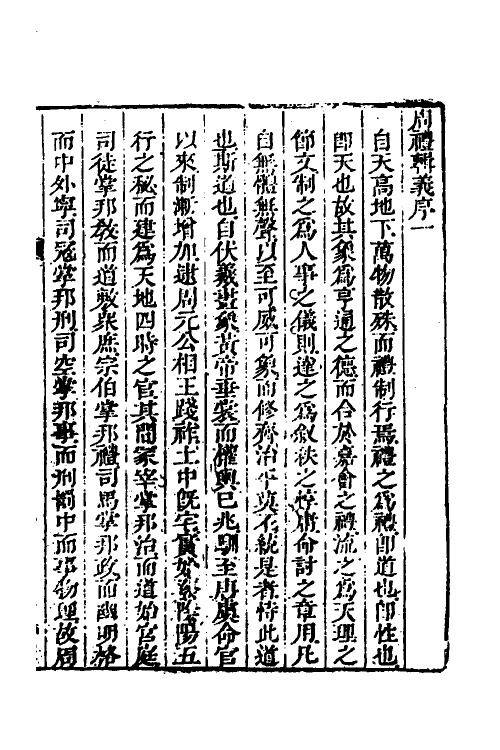 周禮輯義序一
自天高地下萬物散殊而禮制行焉禮之爲禮卽道也卽性也
卽天也故其象爲亨通之德而合於嘉會之禮流之爲天理之
節文制之爲人事之儀則達之爲敘秩之惇庸命討之章用凡
自無體無聲以至可威可象而修齊治平莫不統是者恃此道
也斯道也自伏羲畫象黃帝垂裳而權輿已兆馴至唐虞命官
以來制漸增加逮周元公相王踐祚土中旣宅寅始察陰陽五
行之秘而建爲天地四時之官其間冢宰掌邦治而道始官庭
司徒掌邦教而道敷衆庶宗伯掌邦禮司馬掌邦政而幽明格
而中外寧司寇掌邦刑司空掌邦事而刑獨中而事物理故周